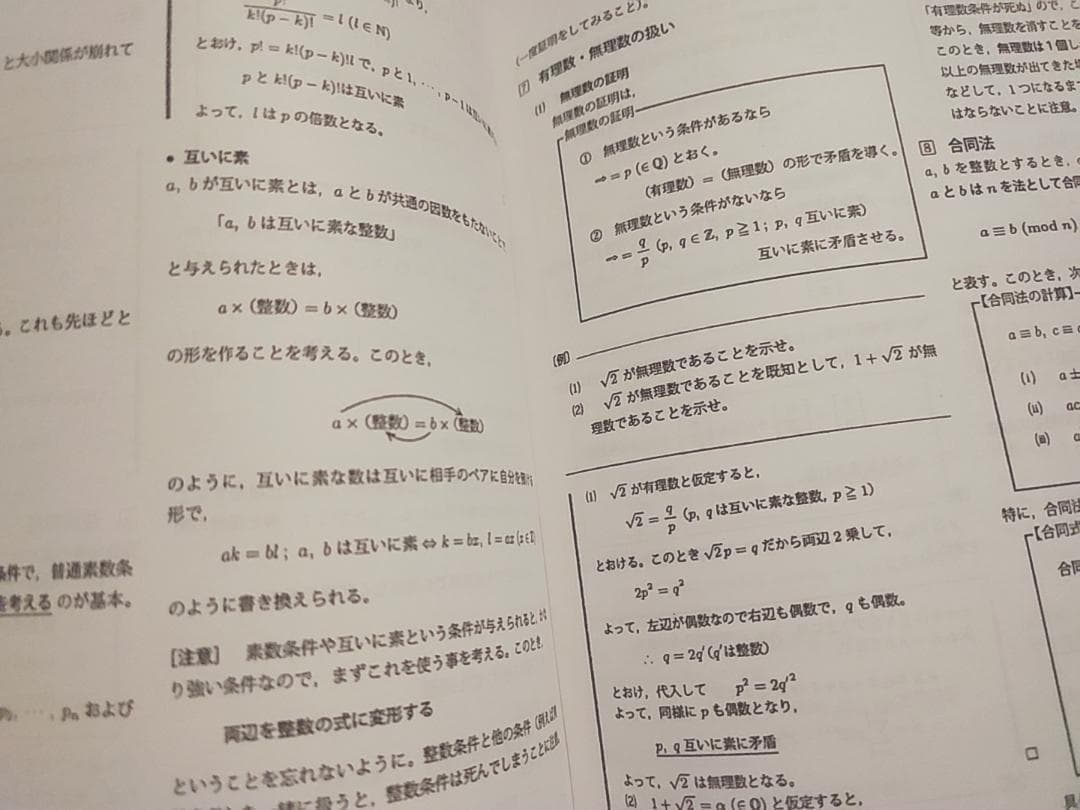 と大小関係が崩れて
これも先ほどと
条件で，普通素数条
を考えるのが基本。
および
p!/k!(p－k)! = l (l∈N)
とおけ，p! = k!(p－k)!l で，p と 1，…，p－1 は
p と k!(p－k)! は互いに素
よって，l は p の倍数となる。
● 互いに素
a, b が互いに素とは，a と b が共通の因数をもたないことで
「a, b は互いに素な整数」
と与えられたときは，
a×（整数）＝b×（整数）
の形を作ることを考える。このとき，
a×（整数）＝b×（整数）
のように，互いに素な数は互いに相手のペアに自分を
形で，
ak = bl ; a, b は互いに素 ⇔ k = bz, l = az (z∈Z)
のように書き換えられる。
［注意］ 素数条件や互いに素という条件が与えられると，
り強い条件なので，まずこれを使う事を考える。このとき，
両辺を整数の式に変形する
ということを忘れないように。整数条件と他の条件（例えば
一緒に扱うと，整数条件は死んでしまうことに注意
（一度証明をしてみること）。
[7] 有理数・無理数の扱い
(1) 無理数の証明
無理数の証明は，
無理数の証明
① 無理数という条件があるなら
⇒ = p (∈Q) とおく。
（有理数）＝（無理数）の形で矛盾を導く。
② 無理数という条件がないなら
⇒ = q/p (p, q∈Z, p≧1 ; p, q 互いに素)
互いに素に矛盾させる。
（例）
(1) √2 が無理数であることを示せ。
(2) √2 が無理数であることを既知として，1＋√2 が無
理数であることを示せ。
(1) √2 が有理数と仮定すると，
√2 = q/p (p, q は互いに素な整数, p≧1)
とおける。このとき √2p = q だから両辺 2 乗して，
2p² = q²
よって，左辺が偶数なので右辺も偶数で，q も偶数。
∴ q = 2q′ (q′は整数)
とおけ，代入して p² = 2q′²
よって，同様に p も偶数となり，
p, q 互いに素に矛盾
よって，√2 は無理数となる。
(2) 1＋√2 = α (∈Q) と仮定すると，
□
「有理数条件が死ぬ」ので，こ
等から，無理数を消すことを
このとき，無理数は 1 個し
以上の無理数が出てきた
などして，1 つになるま
はならないことに注意。
[8] 合同法
a, b を整数とするとき，
a と b は n を法として合同
a≡b (mod n)
と表す。このとき，次
【合同法の計算】
a≡b, c≡
(i) a±
(ii) ac
(iii) a
特に，合同法
【合同式
合同